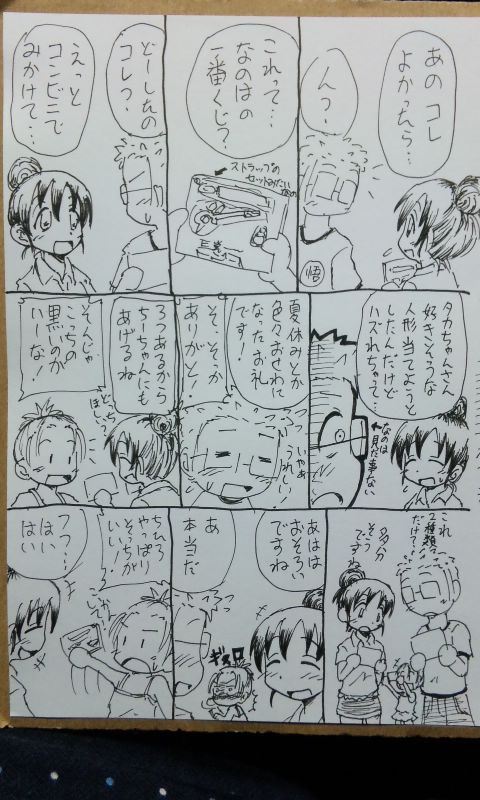 あの コレ
よかったら…
んっ?
悟
これって…
なのはの
一番くじ?
ストラップの
セットみたいなの
どーしたの
コレっ?
えっと
コンビニで
みかけて…
タカちゃんさん
好きそうな
人形当てようと
したんだけど
ハズれちゃって
なのは
見た事ない
夏休みとか
色々おせわに
なったお礼
です!
そ、そっか
ありがと!
いやぁ
うれしい!
3つあるから
ちーちゃんにも
あげるね
そんじゃ
こっちの
黒いのが
いーな!
これ
2種類
だけで…
多分
そう
ですね
あはは
おそろい
ですね
あ
本当だ
ギロ
ちひろ
やっぱり
そっちが
いい
フフ…
はい
はい